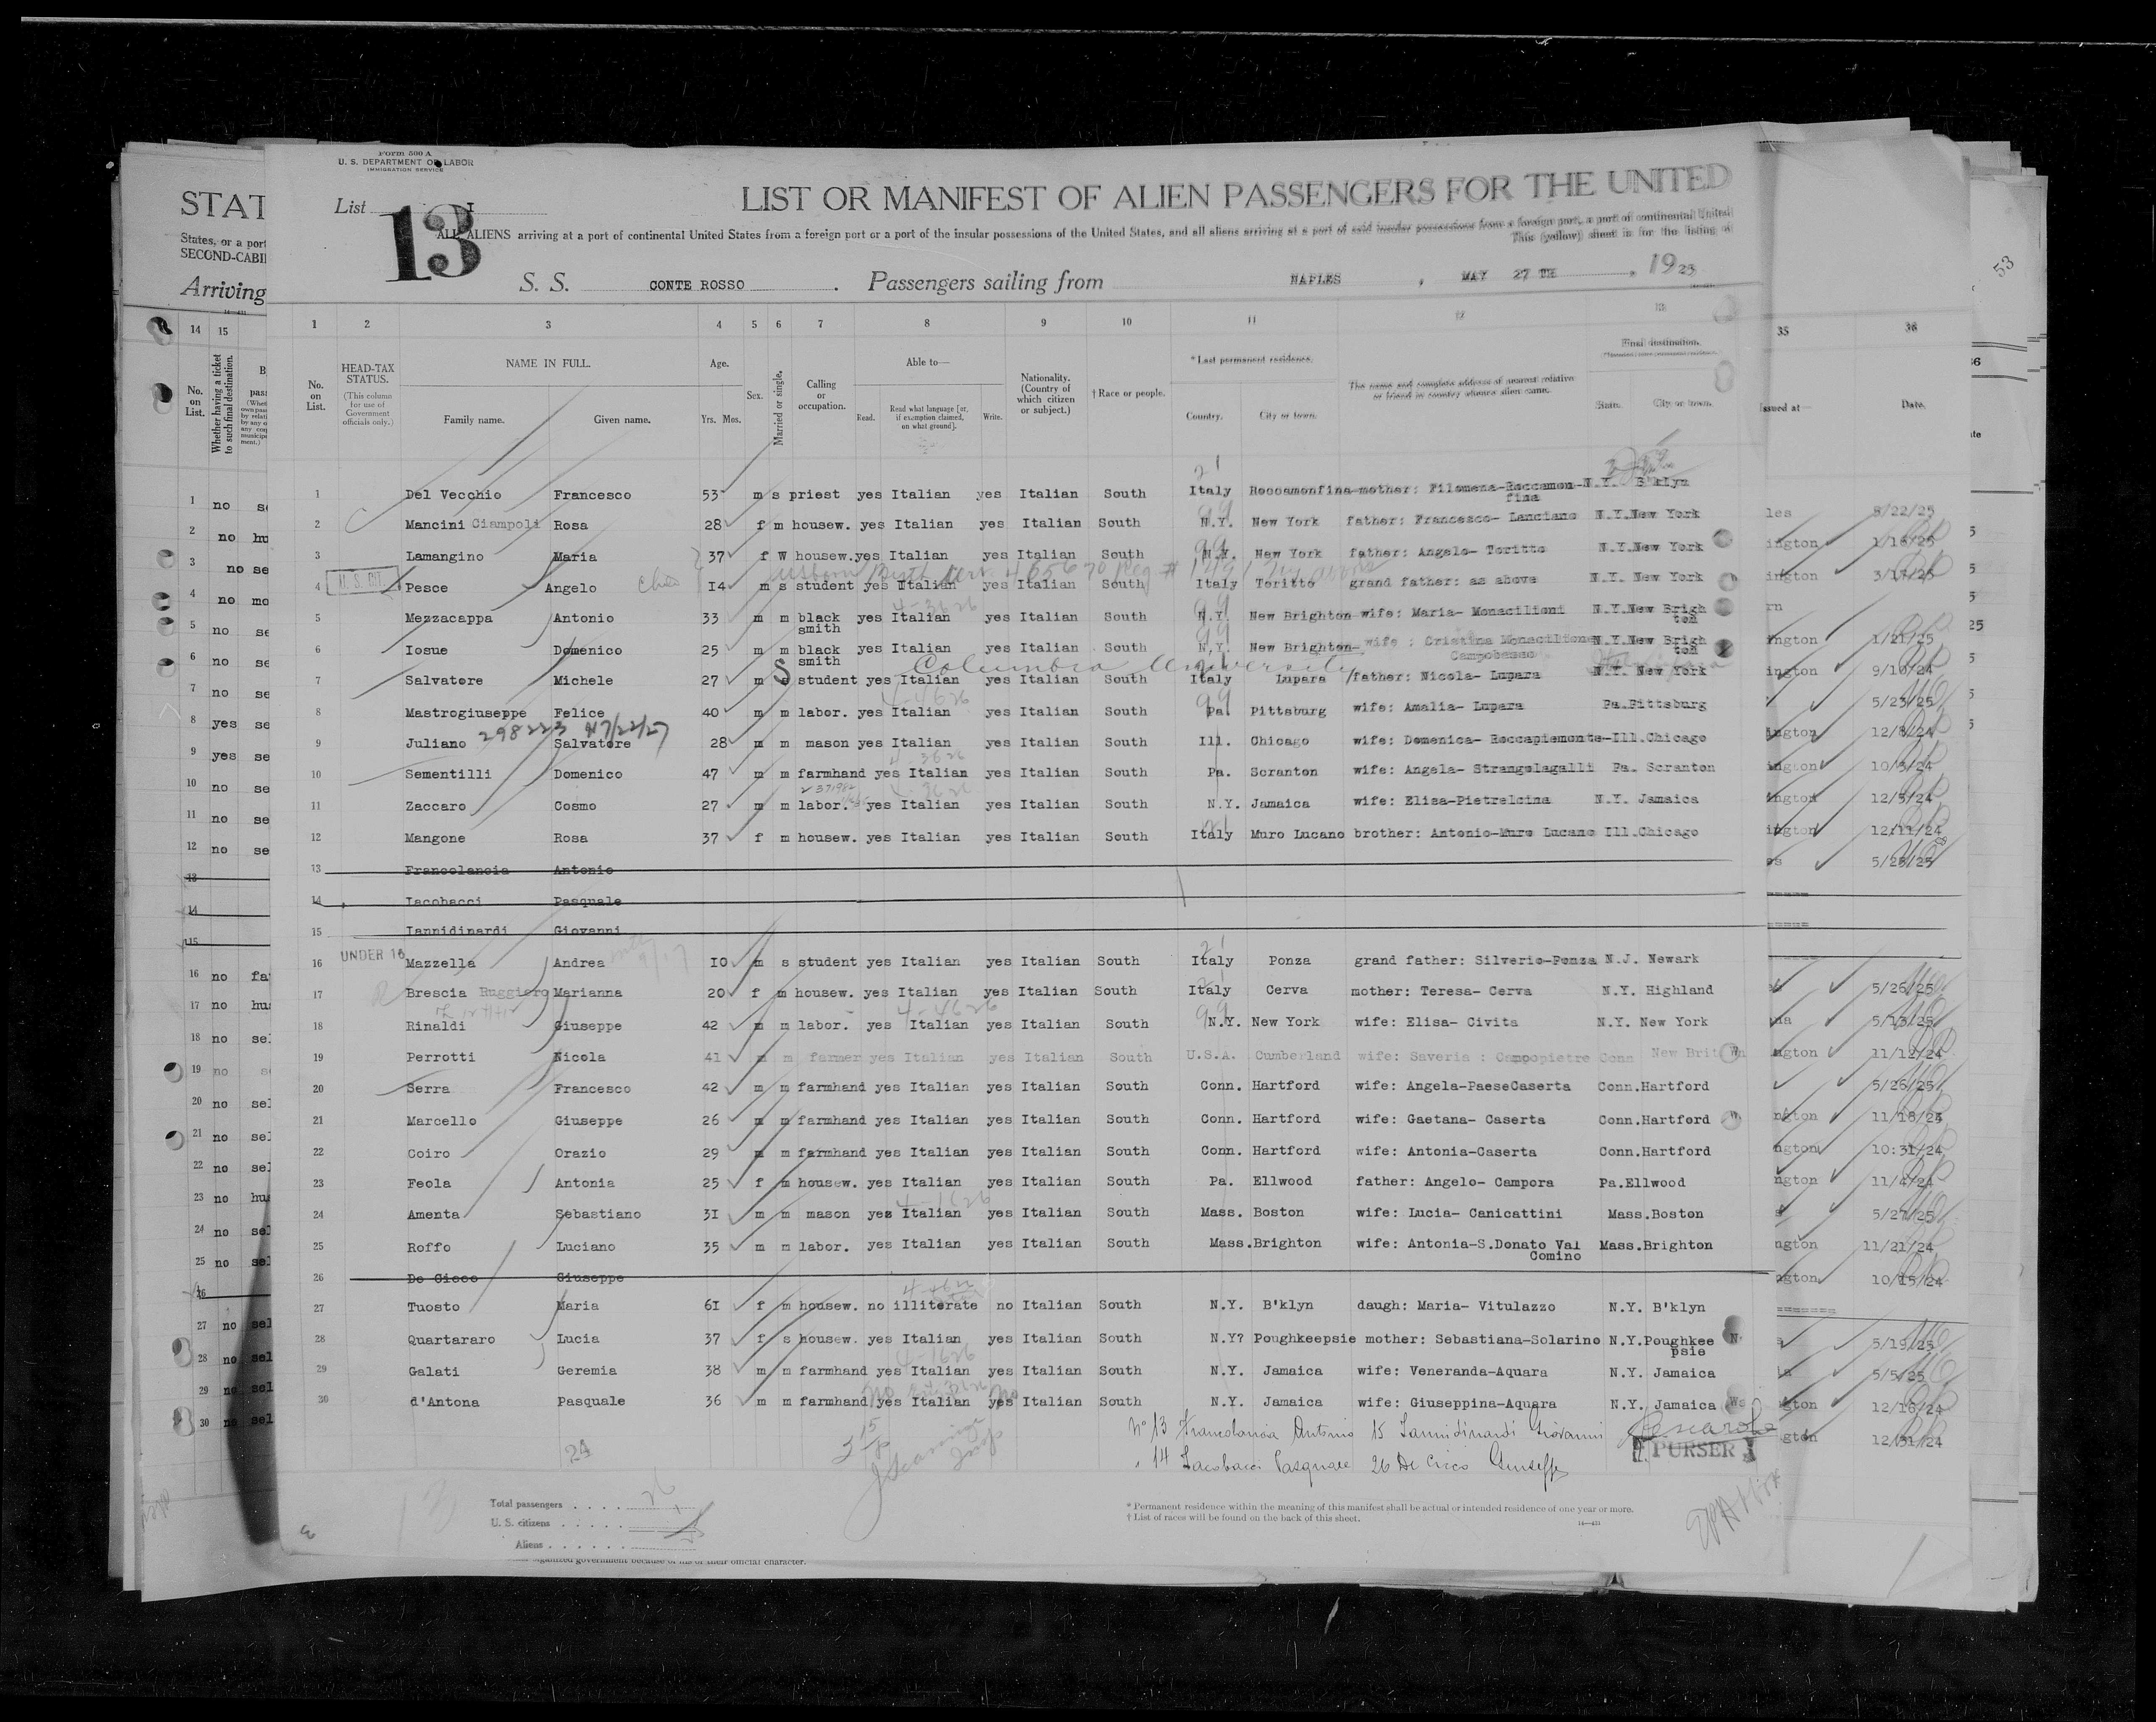 Form 500 A
U. S. DEPARTMENT OF LABOR
IMMIGRATION SERVICE
List I
13
LIST OR MANIFEST OF ALIEN PASSENGERS FOR THE UNITED
ALL ALIENS arriving at a port of continental United States from a foreign port or a port of the insular possessions of the United States, and all aliens arriving at a port of said insular possessions from a foreign port, a port of continental United
This (yellow) sheet is for the listing of
S. S. CONTE ROSSO. Passengers sailing from NAPLES, MAY 27 TH, 1925
STAT
States, or a port
SECOND-CABI
Arriving
53
1 2 3 4 5 6 7 8 9 10 11 12 13
14 15
35 36
No. on List.
HEAD-TAX STATUS.
(This column for use of Government officials only.)
NAME IN FULL.
Family name. Given name.
Age.
Yrs. Mos.
Sex.
Married or single.
Calling or occupation.
Able to—
Read. Read what language [or, if exemption claimed, on what ground]. Write.
Nationality. (Country of which citizen or subject.)
† Race or people.
* Last permanent residence.
Country. City or town.
The name and complete address of nearest relative or friend in country whence alien came.
Final destination.
State. City or town.
Whether having a ticket to such final destination.
Issued at— Date.
1 Del Vecchio Francesco 53 m s priest yes Italian yes Italian South Italy Roccamonfina mother: Filomena-Roccamon-fina N.Y. B'klyn
2 Mancini Ciampoli Rosa 28 f m housew. yes Italian yes Italian South N.Y. New York father: Francesco- Lanciano N.Y. New York 8/22/25
3 Lamangino Maria 37 f W housew. yes Italian yes Italian South N.Y. New York father: Angelo- Toritto N.Y. New York 1/16/25
4 U.S. CIT. Pesce Angelo 14 m s student yes Italian yes Italian South Italy Toritto grand father: as above N.Y. New York 3/17/25
5 Mezzacappa Antonio 33 m m black smith yes Italian yes Italian South N.Y. New Brighton wife: Maria- Monacilioni N.Y. New Brigh ton
6 Iosue Domenico 25 m m black smith yes Italian yes Italian South N.Y. New Brighton- wife : Cristina Monacilione Campobasso N.Y. New Brigh ton 1/21/25
Columbia University
7 Salvatore Michele 27 m S student yes Italian yes Italian South Italy Lupara father: Nicola- Lupara N.Y. New York 9/10/24
8 Mastrogiuseppe Felice 40 m m labor. yes Italian yes Italian South Pa. Pittsburg wife: Amalia- Lupara Pa. Pittsburg 5/23/25
298223 N7/22/27
9 Juliano Salvatore 28 m m mason yes Italian yes Italian South Ill. Chicago wife: Domenica- Roccapiemonte- Ill. Chicago 12/8/24
10 Sementilli Domenico 47 m m farmhand yes Italian yes Italian South Pa. Scranton wife: Angela- Strangolagalli Pa. Scranton 10/3/24
11 Zaccaro Cosmo 27 m m labor. yes Italian yes Italian South N.Y. Jamaica wife: Elisa-Pietrelcina N.Y. Jamaica 12/5/24
12 Mangone Rosa 37 f m housew. yes Italian yes Italian South Italy Muro Lucano brother: Antonio-Muro Lucano Ill. Chicago 12/11/24
13 Francolancia Antonio 5/25/25
14 Iacobacci Pasquale
15 Iannidinardi Giovanni
16 UNDER 16 Mazzella Andrea 10 m s student yes Italian yes Italian South Italy Ponza grand father: Silverio-Ponza N.J. Newark
17 Brescia Ruggiero Marianna 20 f m housew. yes Italian yes Italian South Italy Cerva mother: Teresa- Cerva N.Y. Highland 5/26/25
18 Rinaldi Giuseppe 42 m m labor. yes Italian yes Italian South N.Y. New York wife: Elisa- Civita N.Y. New York 5/13/25
19 Perrotti Nicola 41 m m farmer yes Italian yes Italian South U.S.A. Cumberland wife: Saveria : Campopietre Conn New Brit 11/12/24
20 Serra Francesco 42 m m farmhand yes Italian yes Italian South Conn. Hartford wife: Angela-PaeseCaserta Conn. Hartford 5/26/25
21 Marcello Giuseppe 26 m m farmhand yes Italian yes Italian South Conn. Hartford wife: Gaetana- Caserta Conn. Hartford 11/18/24
22 Coiro Orazio 29 m m farmhand yes Italian yes Italian South Conn. Hartford wife: Antonia-Caserta Conn. Hartford 10:31/24
23 Feola Antonia 25 f m housew. yes Italian yes Italian South Pa. Ellwood father: Angelo- Campora Pa. Ellwood 11/4/24
24 Amenta Sebastiano 31 m m mason yes Italian yes Italian South Mass. Boston wife: Lucia- Canicattini Mass. Boston 5/27/25
25 Roffo Luciano 35 m m labor. yes Italian yes Italian South Mass. Brighton wife: Antonia-S.Donato Val Comino Mass. Brighton 11/21/24
26 De Cicco Giuseppe 10/15/24
27 Tuosto Maria 61 f m housew. no illiterate no Italian South N.Y. B'klyn daugh: Maria- Vitulazzo N.Y. B'klyn
28 Quartararo Lucia 37 f s housew. yes Italian yes Italian South N.Y? Poughkeepsie mother: Sebastiana-Solarino N.Y. Poughkee psie 5/19/25
29 Galati Geremia 38 m m farmhand yes Italian yes Italian South N.Y. Jamaica wife: Veneranda-Aquara N.Y. Jamaica 5/5/25
30 d'Antona Pasquale 36 m m farmhand yes Italian yes Italian South N.Y. Jamaica wife: Giuseppina-Aquara N.Y. Jamaica 12/16/24
12/31/24
No 13 Francolancia Antonio 15 Iannidinardi Giovanni
" 14 Iacobacci Pasquale 26 De Cicco Giuseppe
PURSER
24
Total passengers
U. S. citizens
Aliens
* Permanent residence within the meaning of this manifest shall be actual or intended residence of one year or more.
† List of races will be found on the back of this sheet.
organized government because of his or their official character.